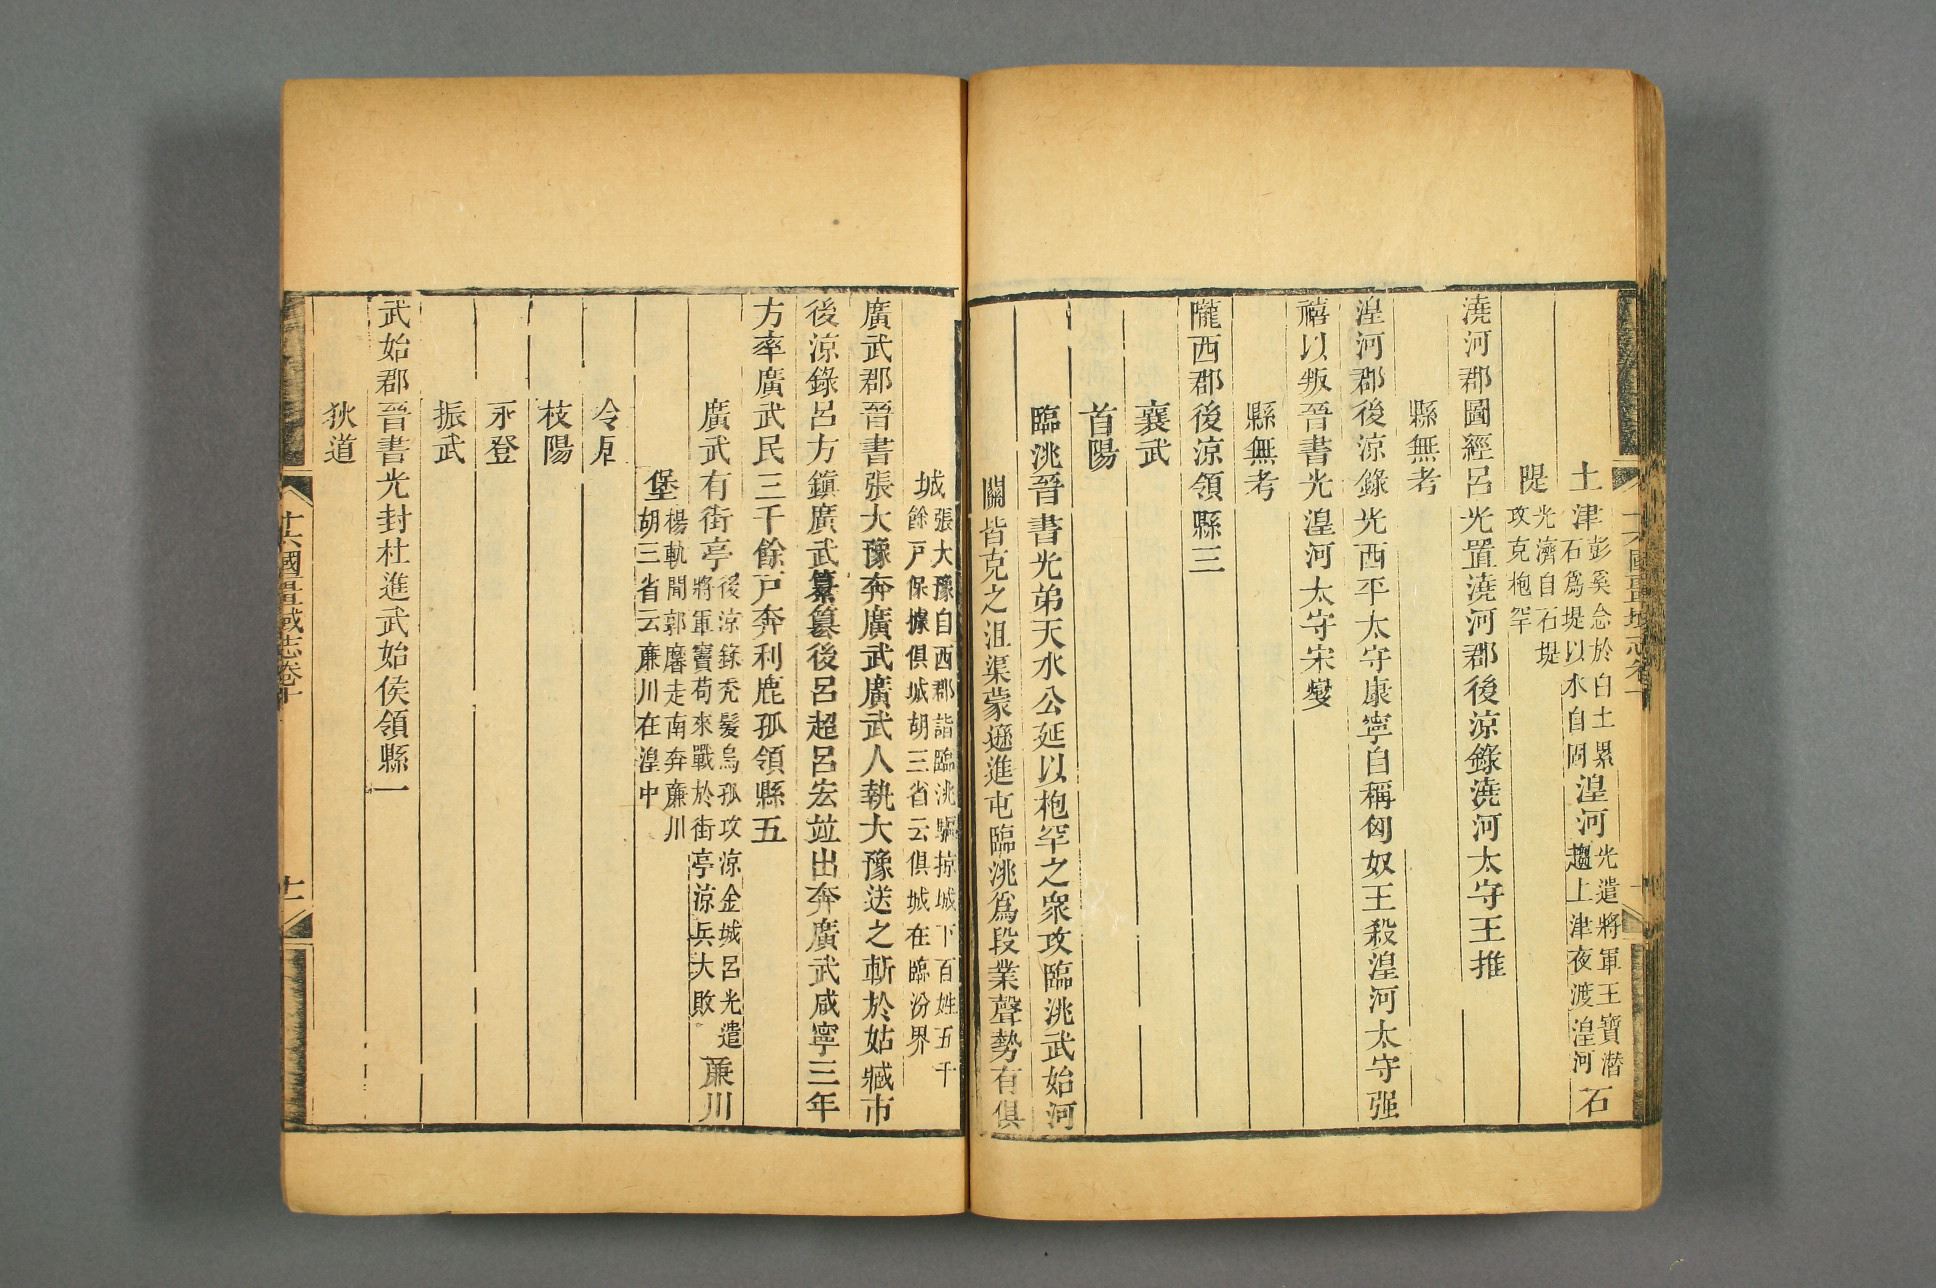 土津彭奚念於白土累石爲堤以水自固湟河光遣將軍王寶潛趨上津夜渡湟河石
隄光濟自石堤攻克枹罕
澆河郡圖經呂光置澆河郡後涼錄澆河太守王推
縣無考
湟河郡後涼錄光西平太守康寧自稱匈奴王殺湟河太守强
禧以叛晉書光湟河太守宋燮
縣無考
隴西郡後涼領縣三
襄武
首陽
臨洮晉書光弟天水公延以枹罕之衆攻臨洮武始河
關皆克之沮渠蒙遜進屯臨洮爲段業聲勢有俱
城張大豫自西郡詣臨洮驅掠城下百姓五千餘戸保據俱城胡三省云俱城在臨汾界
廣武郡晉書張大豫奔廣武廣武人執大豫送之斬於姑臧市
後涼錄呂方鎮廣武纂簒後呂超呂宏竝出奔廣武咸寧三年
方率廣武民三千餘戸奔利鹿孤領縣五
廣武有街亭後涼錄禿髮烏孤攻涼金城呂光遣將軍竇苟來戰於街亭涼兵大敗廉川
堡楊軌聞郭黁走南奔廉川胡三省云廉川在湟中
令居
枝陽
永登
振武
武始郡晉書光封杜進武始侯領縣一
狄道
十六國疆域志卷十
十一